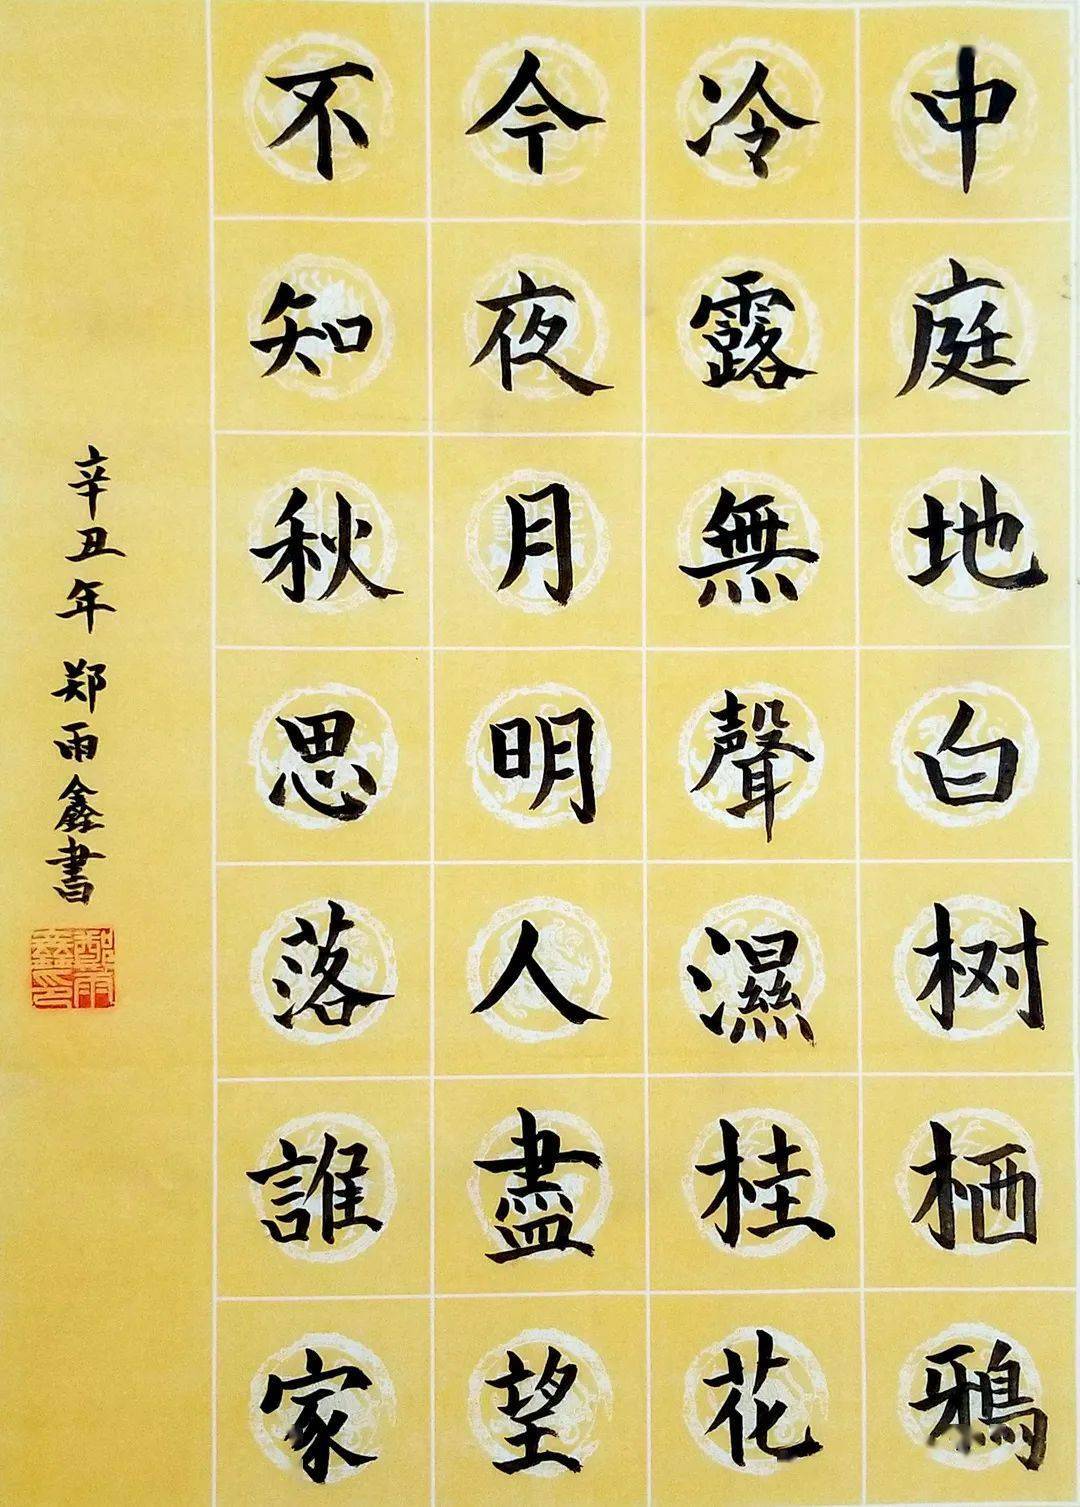 中庭地白树栖鴉
冷露無聲濕桂花
今夜月明人盡望
不知秋思落誰家
辛丑年郑雨鑫書
鄭雨鑫印